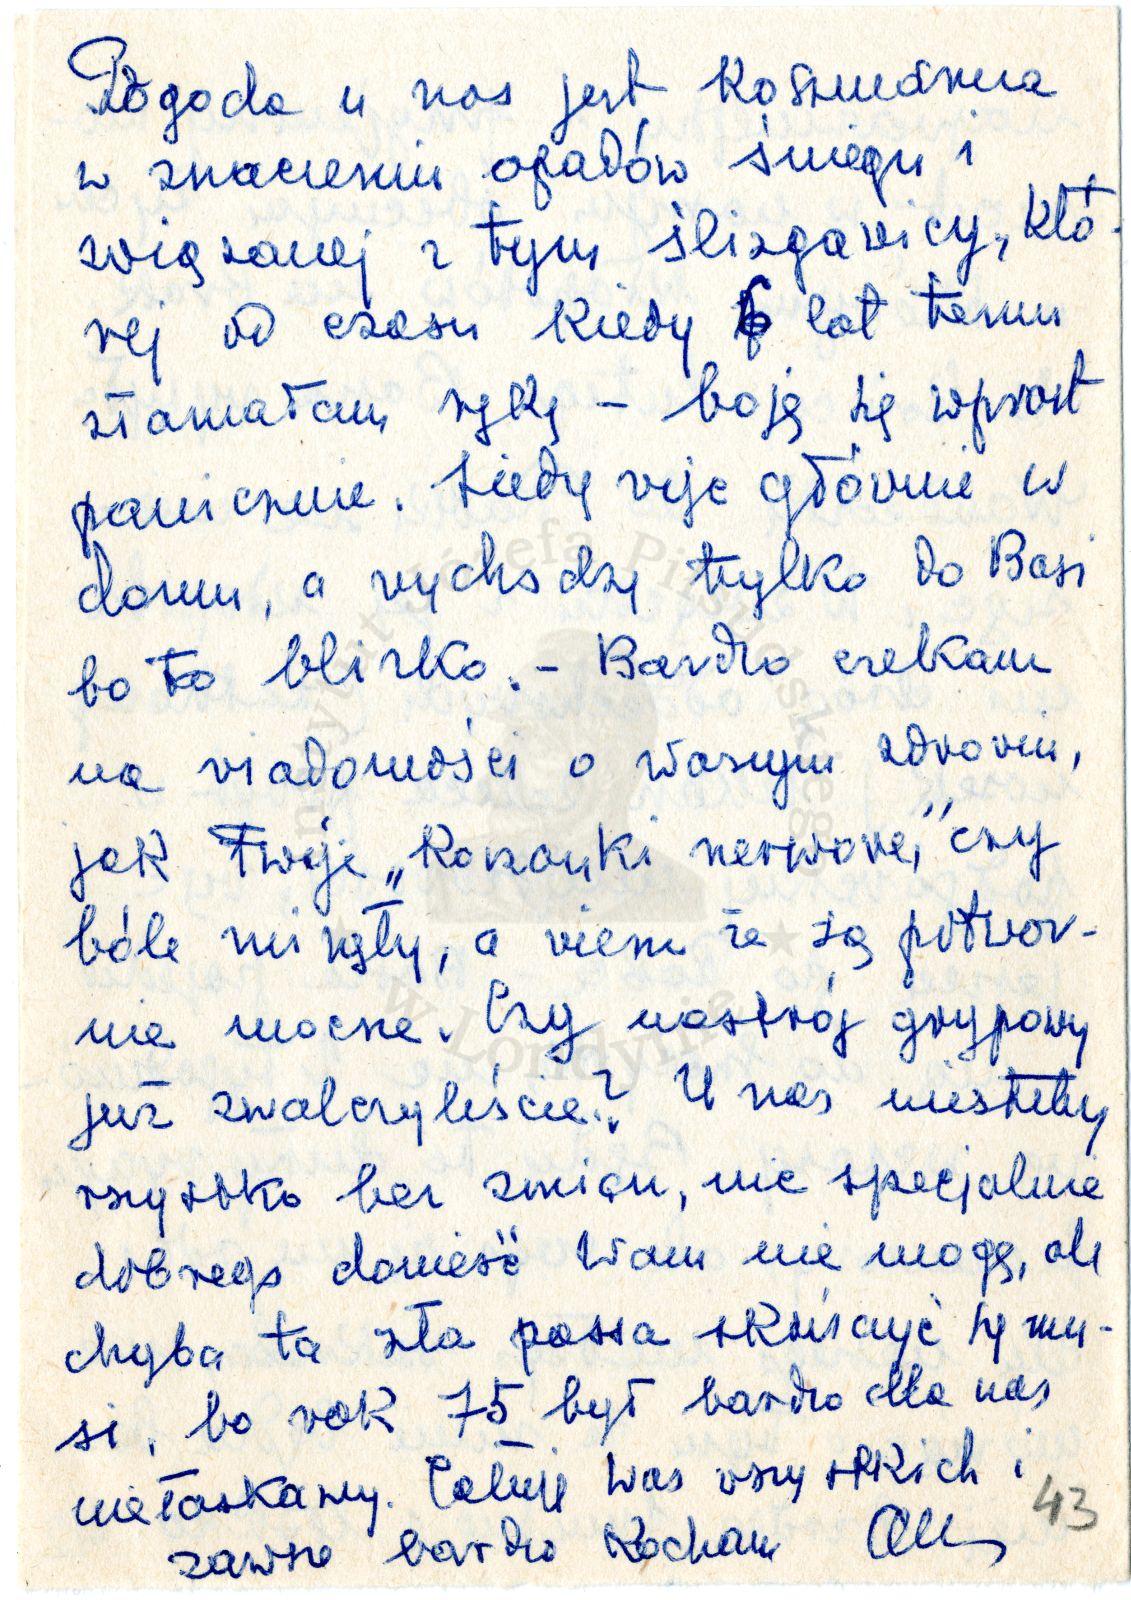 Pogoda u nas jest koszmarna
w znaczeniu opadów śniegu i
związanej z tym ślizgawicy, któ-
rej od czasu kiedy 6 lat temu
złamałam rękę – boję się wprost
panicznie. Siedzę więc głównie w
domu, a wychodzę tylko do Basi
bo to blisko. – Bardzo czekam
na wiadomości o Waszym zdrowiu,
jak Twoje „Korzonki nerwowe," czy
bóle minęły, a wiem że są potwor-
nie mocne. Czy nastrój grypowy
już zwalczyliście? U nas niestety
wszystko bez zmian, nic specjalnie
dobrego donieść Wam nie mogę, ale
chyba ta zła passa skończyć się mu-
si, bo rok 75 był bardzo dla nas
niełaskawy. Całuję Was wszystkich i
zawsze bardzo kocham
43
Instytut Józefa Piłsudskiego
w Londynie